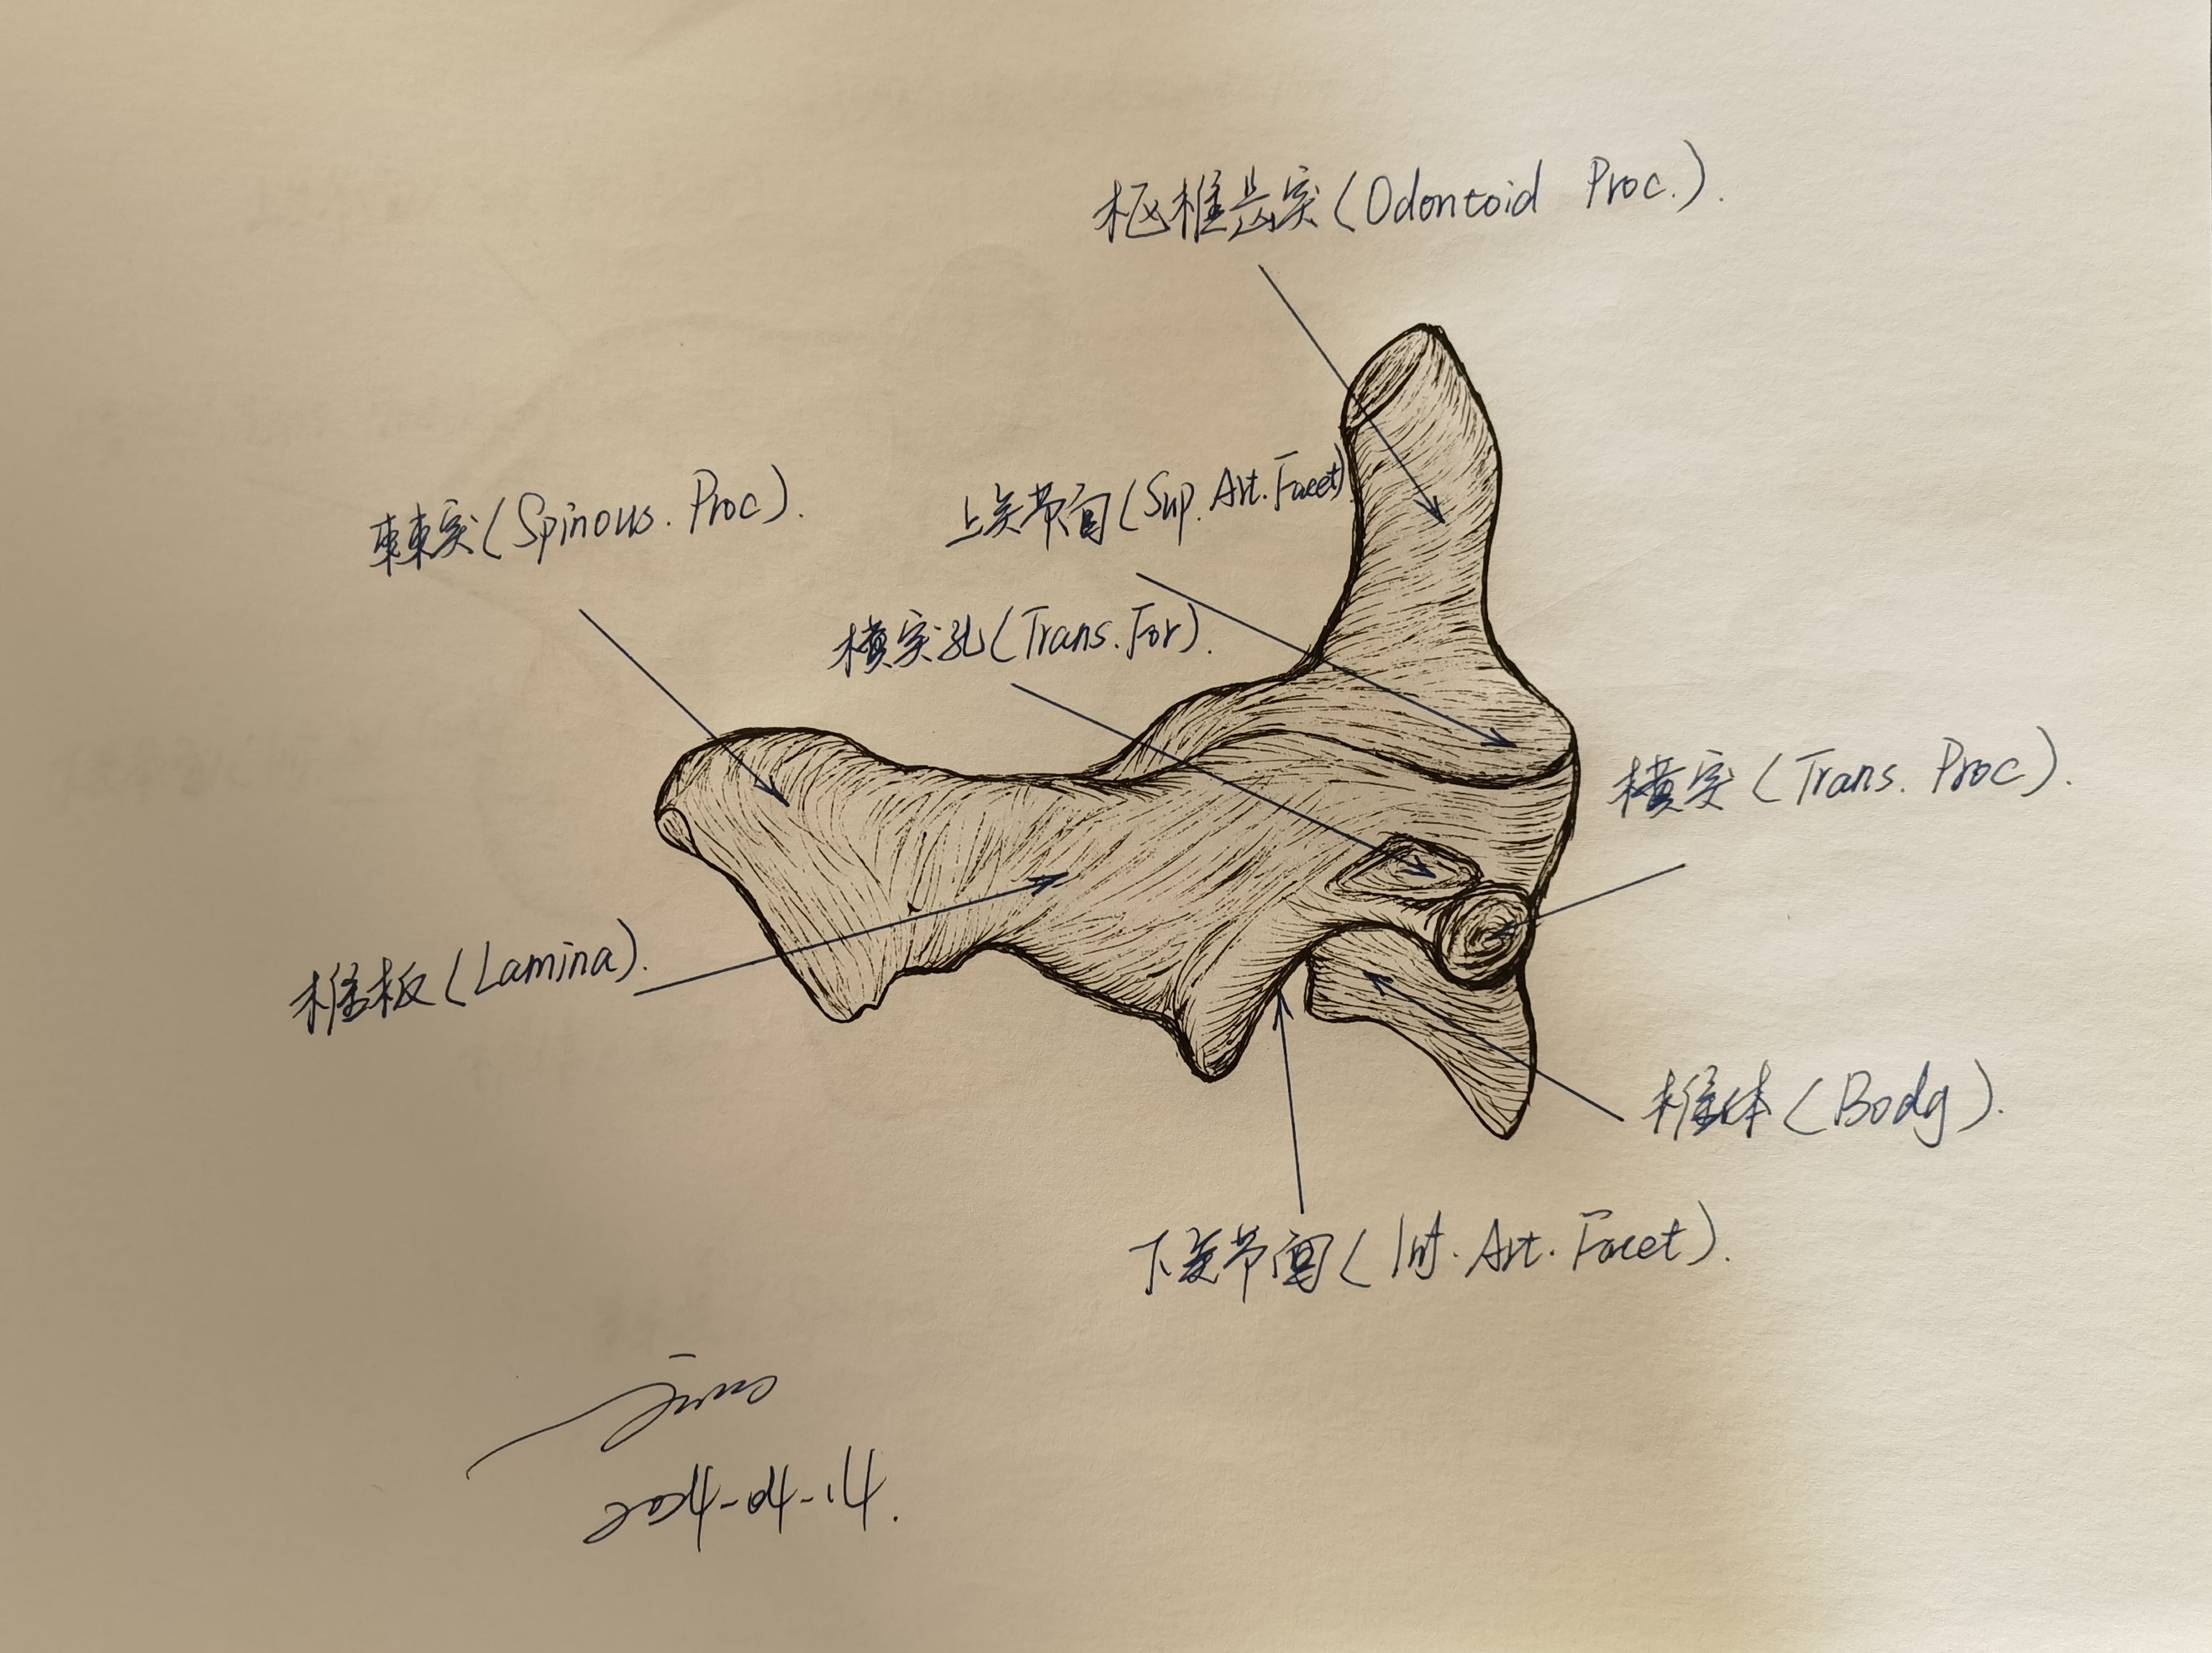 枢椎齿突(Odontoid Proc.).
棘突(Spinous. Proc).
上关节面(Sup. Art. Facet)
横突孔(Trans. For).
横突(Trans. Proc).
椎板(Lamina).
椎体(Body).
下关节面(Inf. Art. Facet).
2024-04-14.